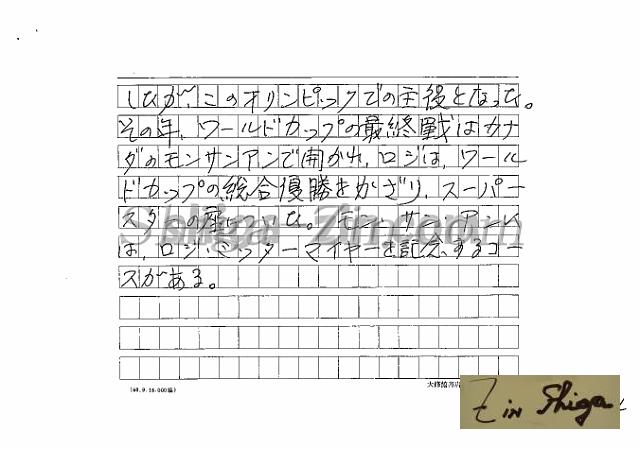 したが、このオリンピックでの主役となった。
その年、ワールドカップの最終戦はカナ
ダのモンサンアンで開かれ、ロジは、ワール
ドカップの総合優勝をかざり、スーパー
スターの座についた。モン・サン・アンに
は、ロジ・ミッターマイヤーを記念するコー
スがある。
Shiga Zin.com
(40.9.10.000協)
大修館書店
Z in Shiga